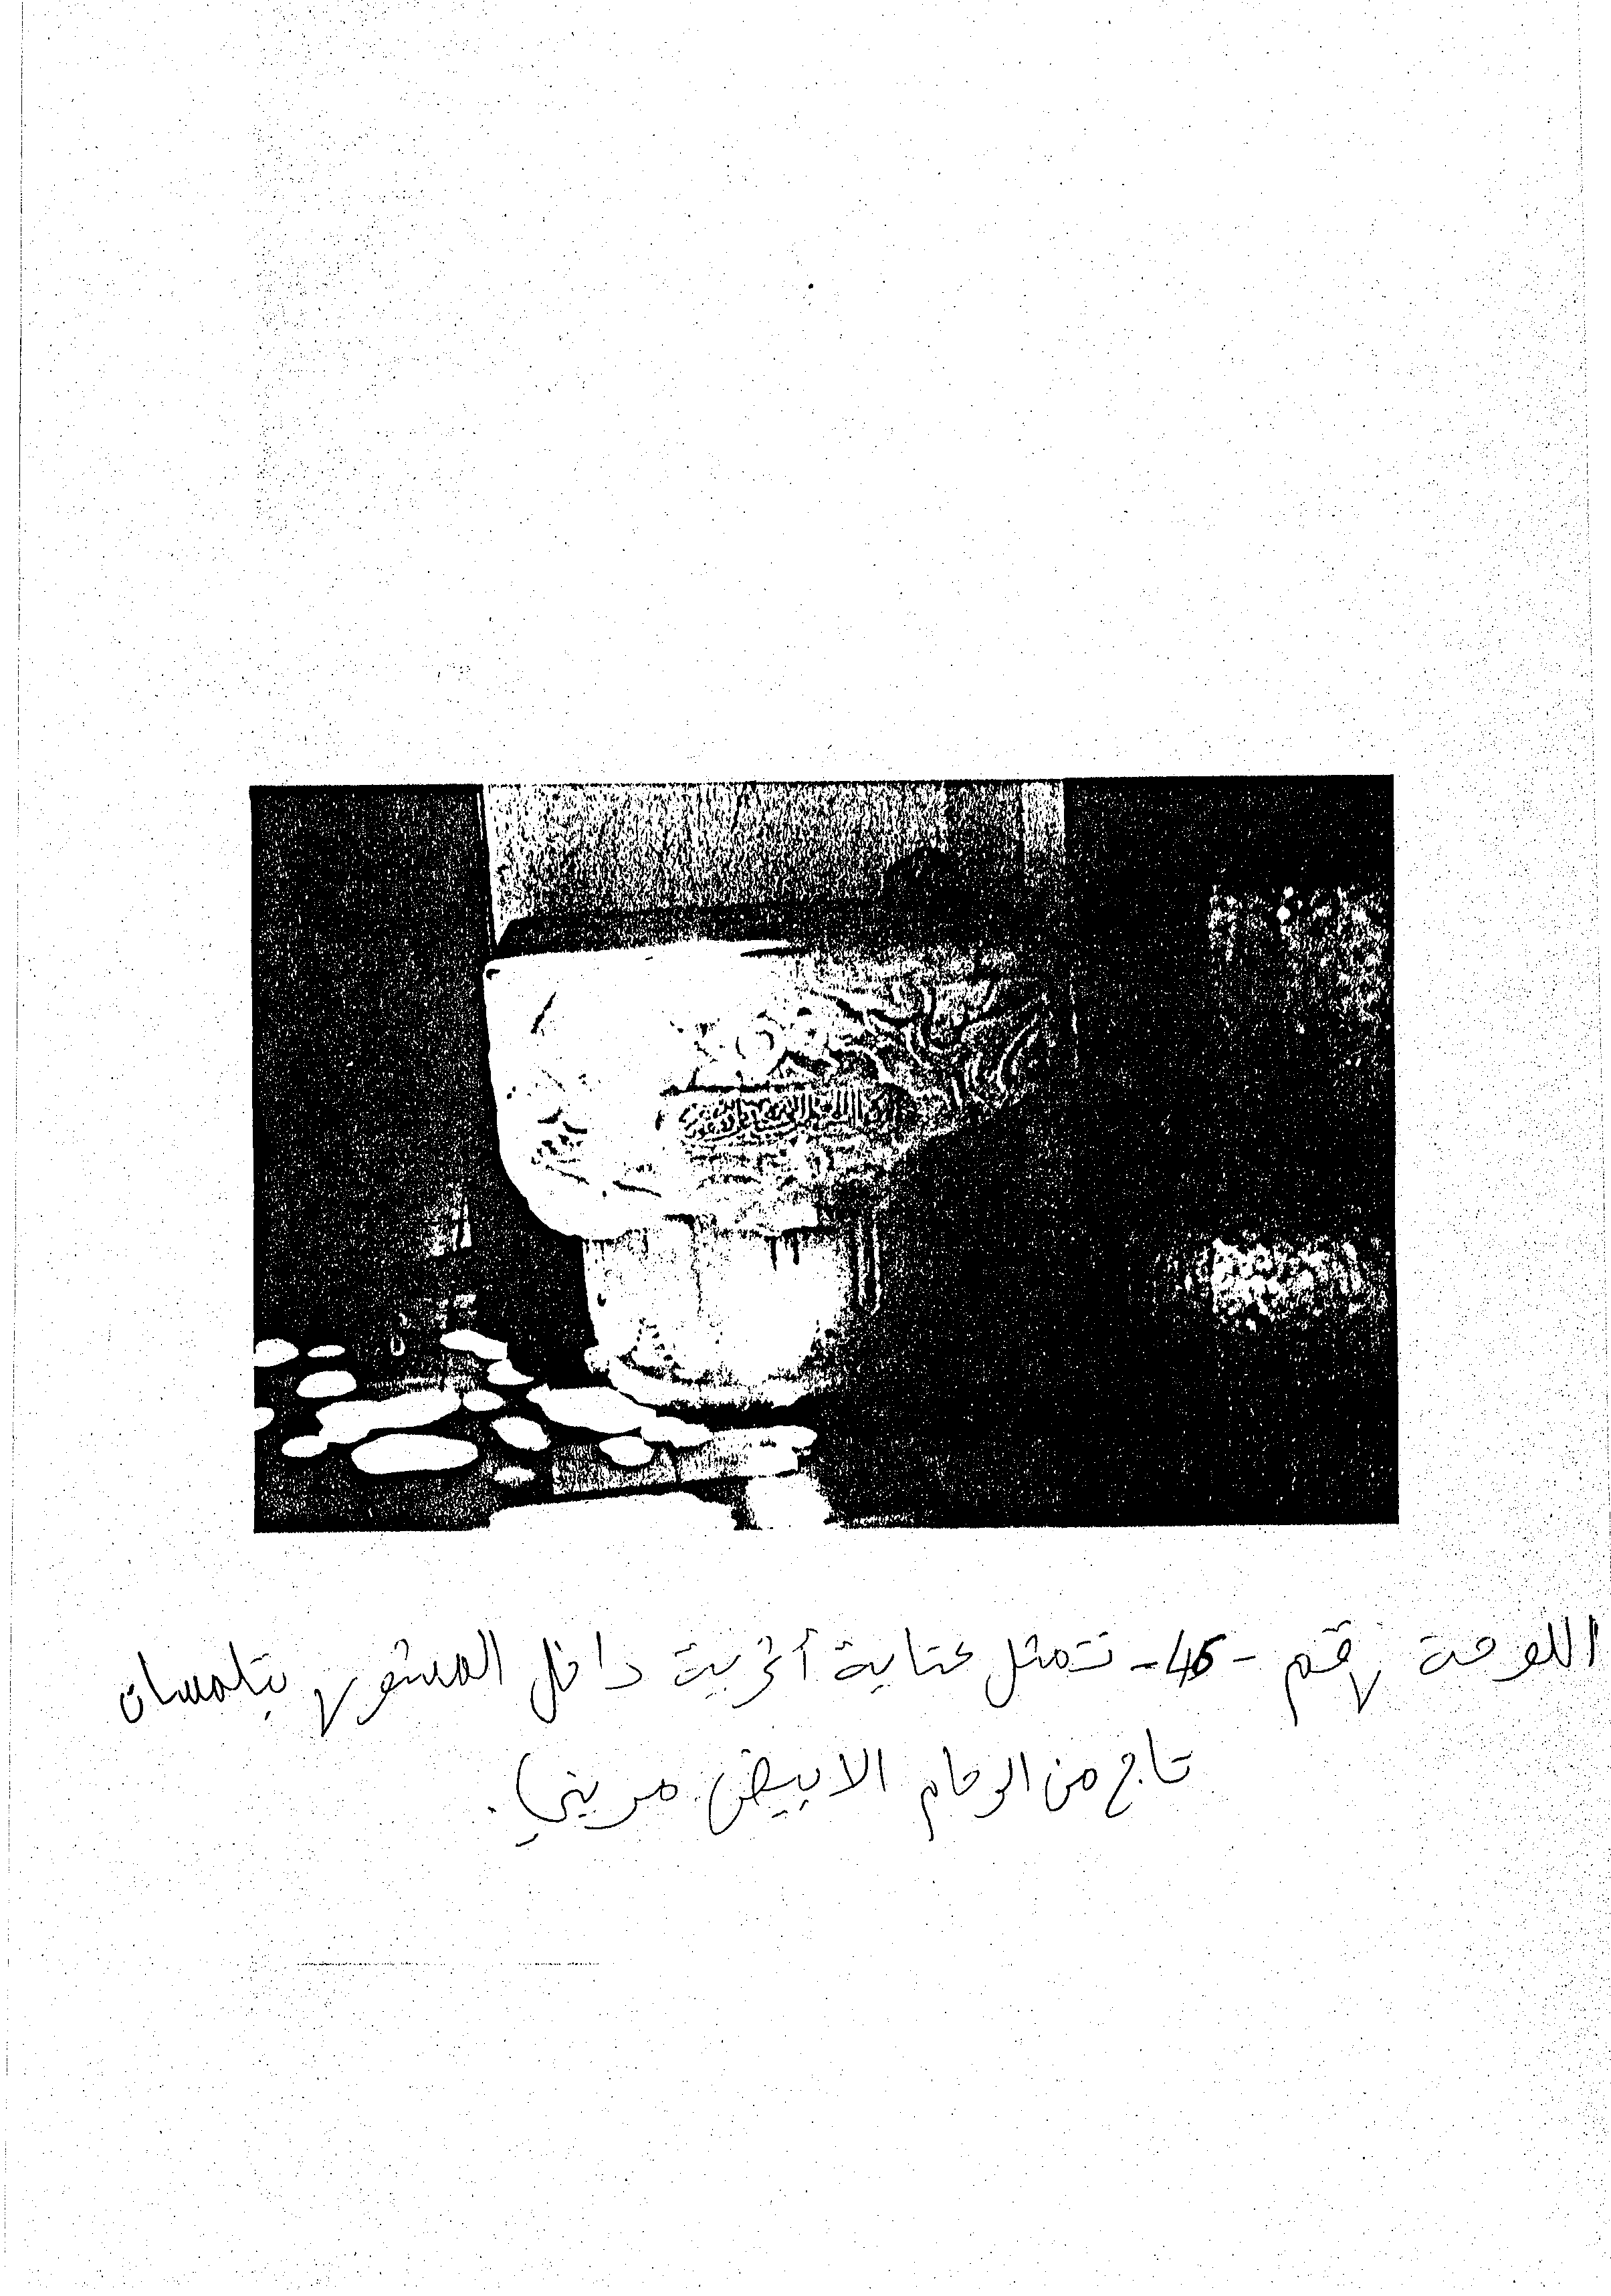 اللوحة رقم -46- تمثل كتابة أثرية داخل المشور بتلمسان
تاج من الرخام الابيض مريني.